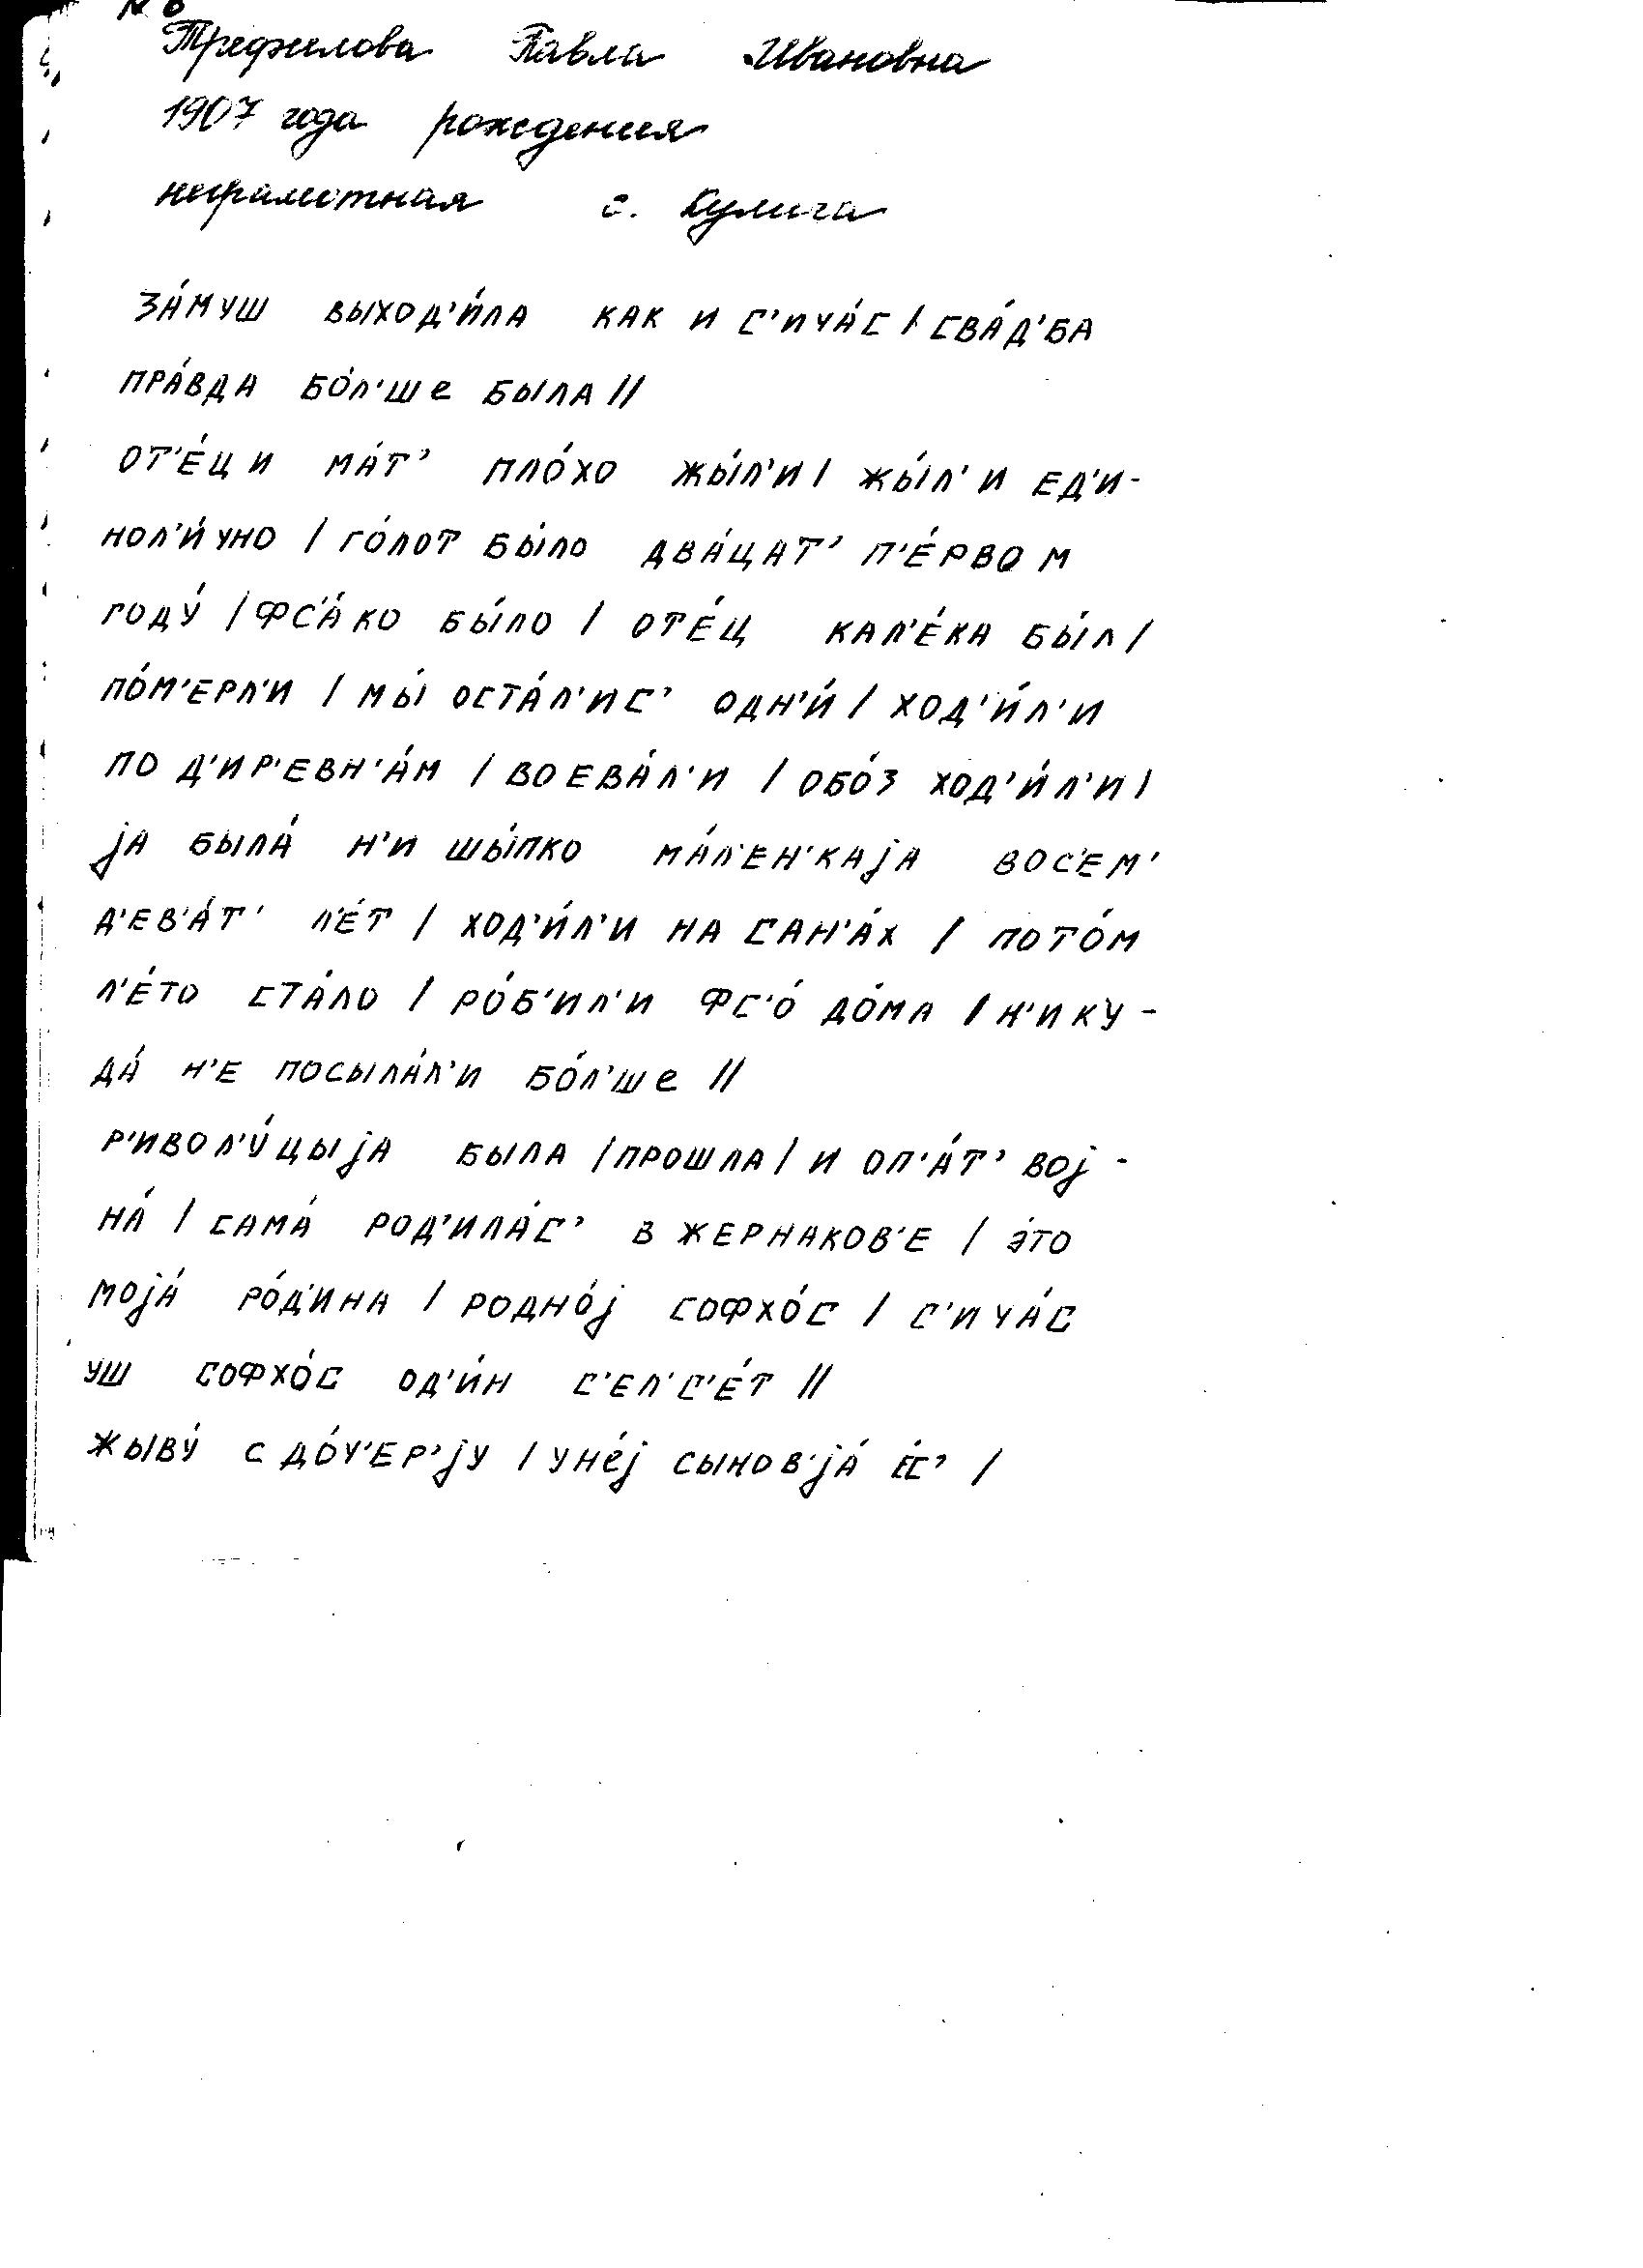 Трефилова Павла Ивановна
1907 года рождения
неграмотная с. Кулига
ЗА́МУШ ВЫХОД'И́ЛА КАК И С'ИЧА́С / СВА́Д'БА
ПРА́ВДА БО́Л'ШЕ БЫЛА //
ОТ'Е́Ц И МА́Т' ПЛО́ХО ЖЫ́Л'И / ЖЫ́Л'И ЕД'И-
НОЛ'И́ЧНО / ГО́ЛОТ БЫ́ЛО ДВА́ЦАТ' П'Е́РВОМ
ГОДУ́ / ФС'А́КО БЫ́ЛО / ОТ'Е́Ц КАЛ'Е́КА БЫ́Л /
ПО́М'ЕРЛ'И / МЫ́ ОСТА́Л'ИС' ОДН'И́ / ХОД'И́Л'И
ПО Д'ИР'ЕВН'А́М / ВОЕВА́Л'И / ОБО́З ХОД'И́Л'И /
jА БЫЛА́ Н'И ШЫ́ПКО МА́Л'ЕН'КАjА ВОС'ЕМ'
Д'ЕВ'А́Т' Л'Е́Т / ХОД'И́Л'И НА САН'А́Х / ПОТО́М
Л'Е́ТО СТА́ЛО / РО́Б'ИЛ'И ФС'О́ ДО́МА / Н'ИКУ-
ДА́ Н'Е ПОСЫЛА́Л'И БО́Л'ШЕ //
Р'ИВОЛ'У́ЦЫjА БЫЛА / ПРОШЛА / И ОП'А́Т' ВОj-
НА́ / САМА́ РОД'ИЛА́С' В ЖЕРНАКОВ'Е / Э́ТО
МОjА́ РО́Д'ИНА / РОДНО́j СОФХО́С / С'ИЧА́С
УШ СОФХО́С ОД'И́Н С'ЕЛ'С'Е́Т //
ЖЫВУ́ С ДО́Ч'ЕР'jУ / У НЕ́j СЫНОВ'jА́ Е́С' /